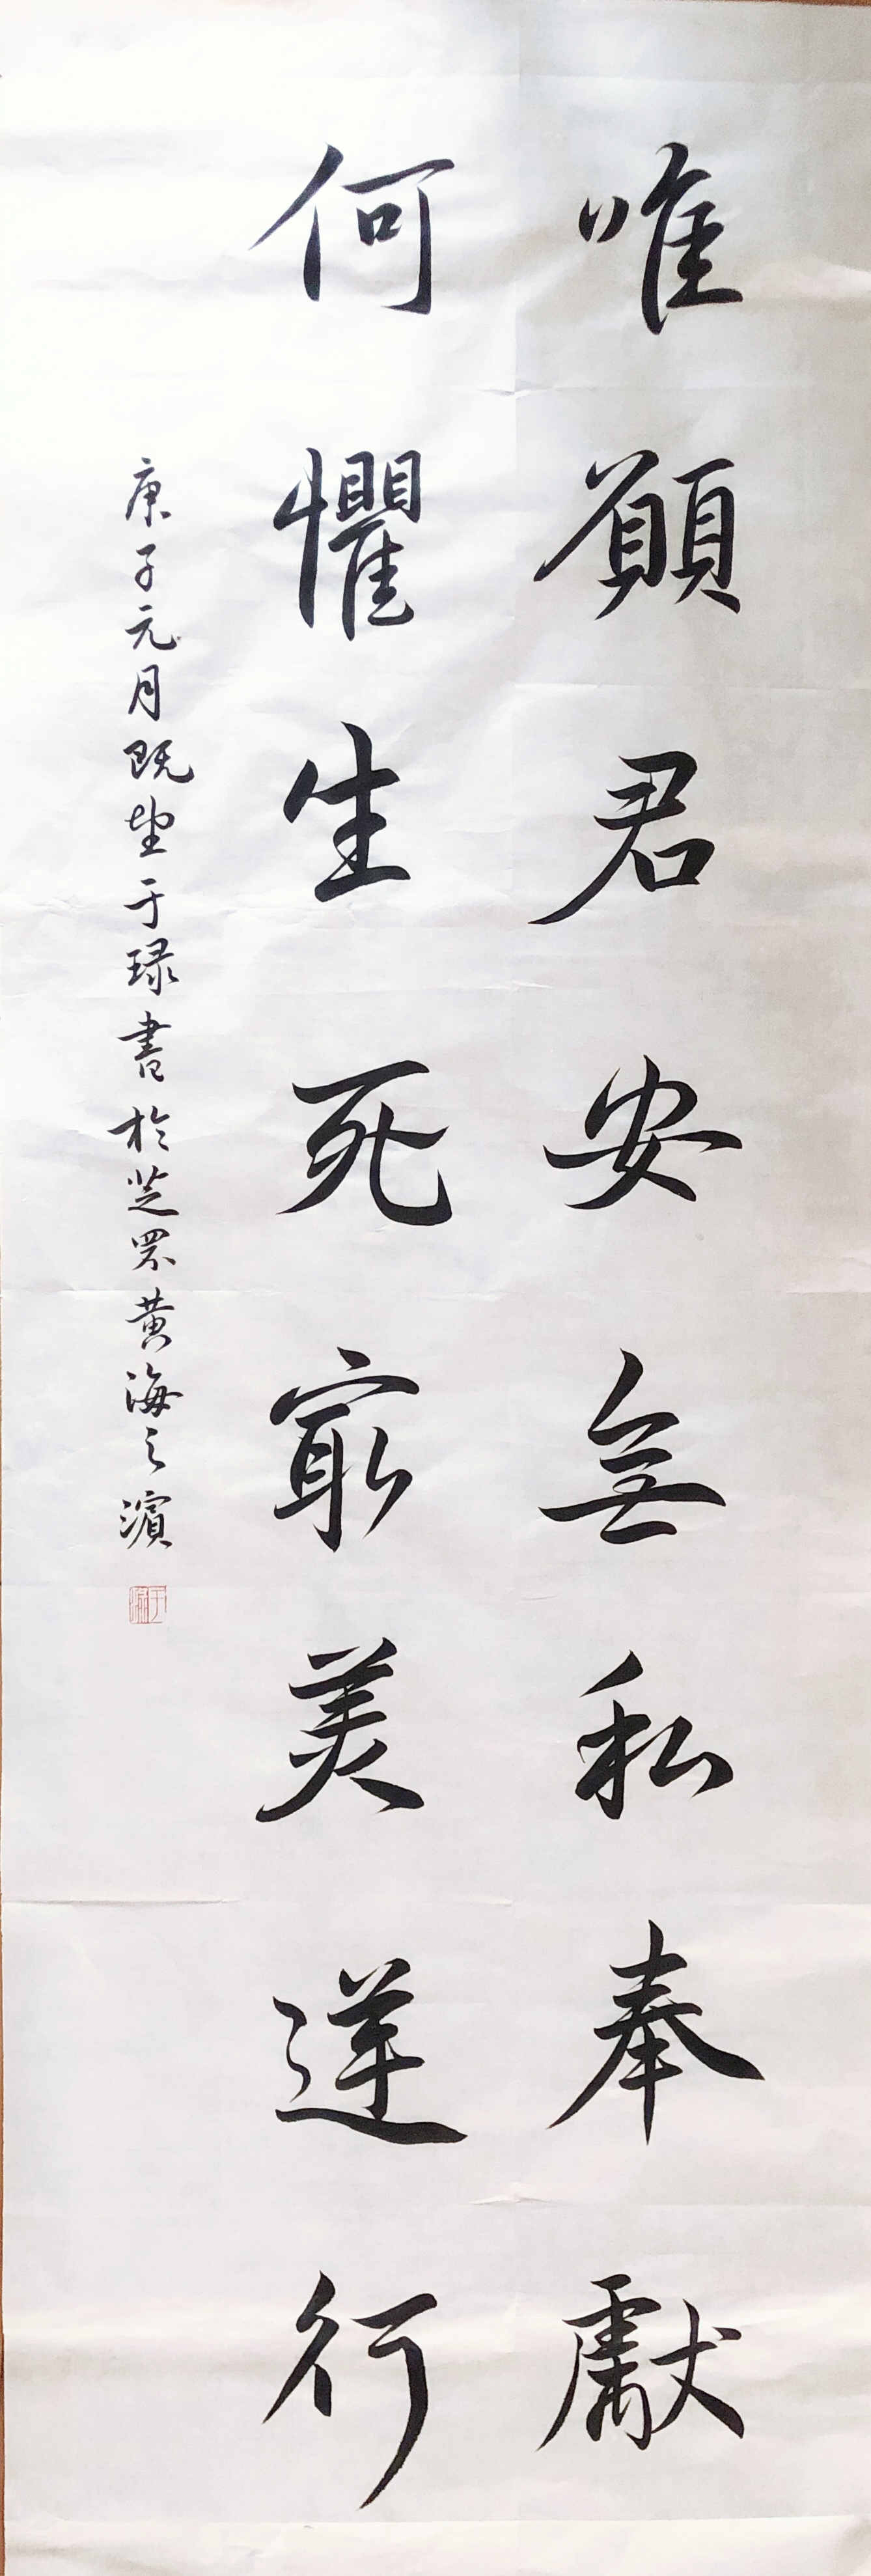 唯願君安無私奉獻
何懼生死最美逆行
庚子元月既望于琭書於芝罘黄海之濱